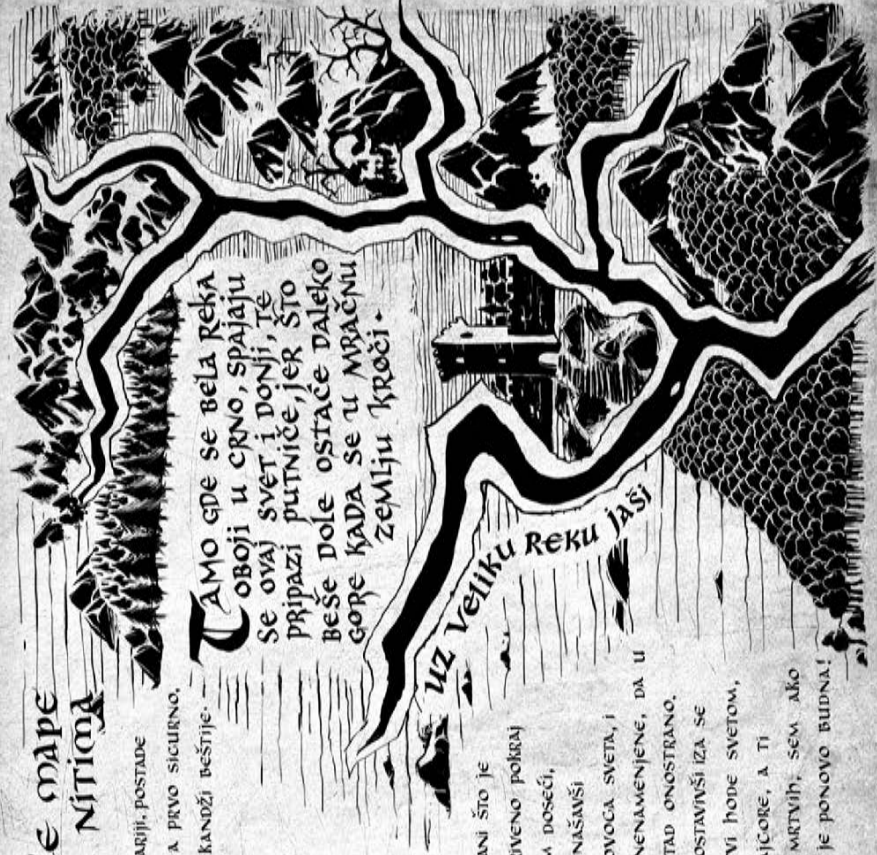 E MAPE
NITIMA
ARIJI, POSTADE
A PRVO SIGURNO,
KANDŽI BEŠTIJE.
TAMO GDE SE BELA REKA
OBOJI U CRNO, SPAJAJU
SE OVAJ SVET I DONJI, TE
PRIPAZI PUTNIČE, JER ŠTO
BEŠE DOLE OSTAĆE DALEKO
GORE KADA SE U MRAČNU
ZEMLJU KROČI.
UZ VELIKU REKU JAŠI
ANI ŠTO JE
RIVENO POKRAJ
M DOSEĆI,
NAŠAVŠI
OVOGA SVETA, I
NENAMENJENE, DA U
TAD ONOSTRANO.
OSTAVIVŠI IZA SE
VI HODE SVETOM,
AJGORE, A TI
MRTVIH, SEM AKO
JE PONOVO BUDNA!